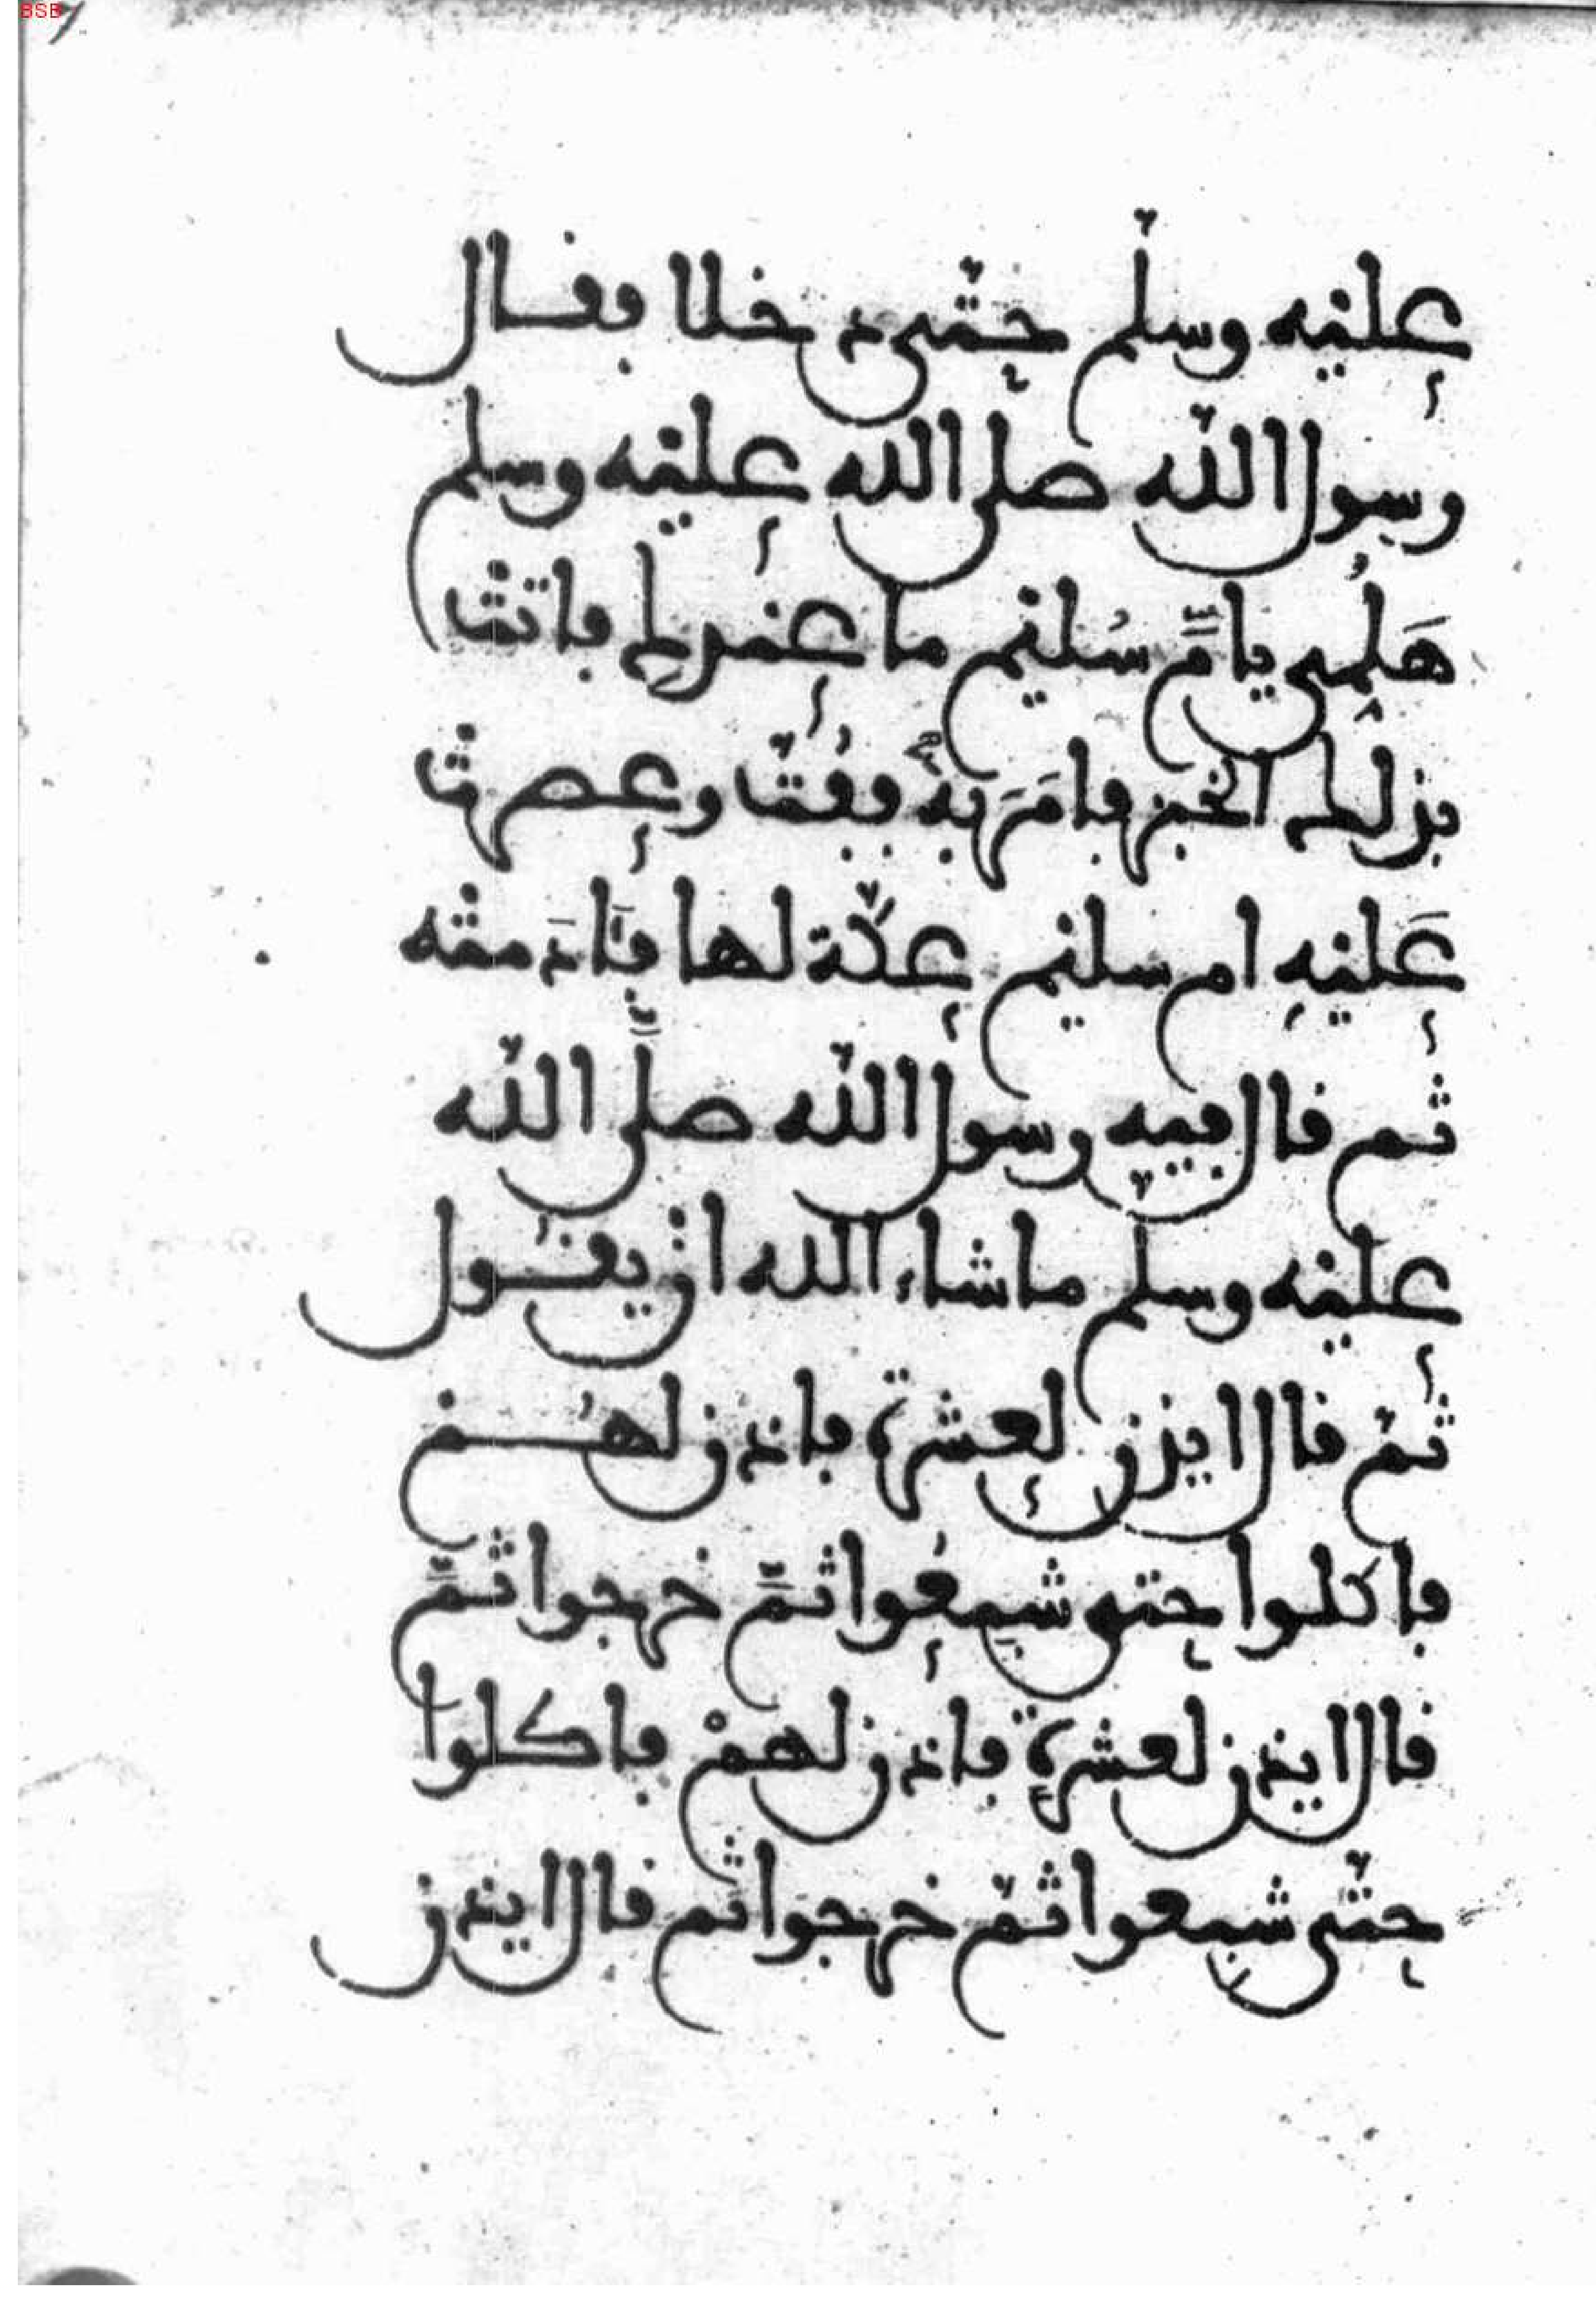 BSB
عليه وسلم حتّى دخلا فقال
رسول الله صلى الله عليه وسلم
هَلمِى يا امّ سُليم ما عندك فاتت
بذلك الخبز فامَرَ بهِ ففُتّ وعصرت
عَليهِ ام سليم عكّة لها فآدَمته
ثم قال فيه رسول الله صلَّى الله
عليه وسلم ما شاء الله ان يقُول
ثمّ قال ايذن لعشرة فاذن لهُم
فاكلوا حتى شبِعُوا ثمَّ خرجوا ثمَّ
قال ايذن لعشرةٍ فاذن لهمْ فاكلوا
حتّى شبعوا ثمّ خرجوا ثم قال ايذن